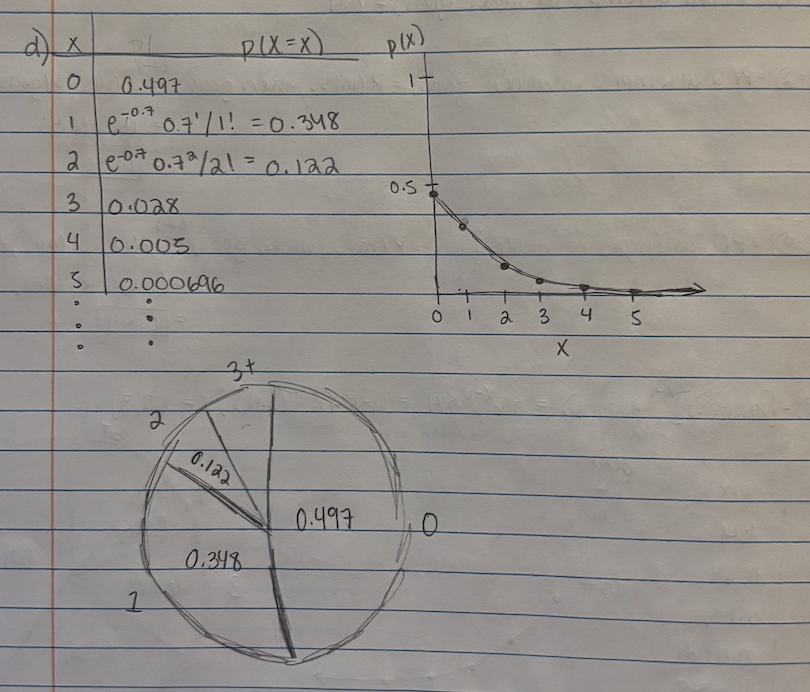 d) x p(X=x)
0 0.497
1 e^-0.7 0.7^1/1! = 0.348
2 e^-0.7 0.7^2/2! = 0.122
3 0.028
4 0.005
5 0.000696
⋮ ⋮
p(x)
1
0.5
0 1 2 3 4 5
x
3+
2
0.122
0.497 0
0.348
1